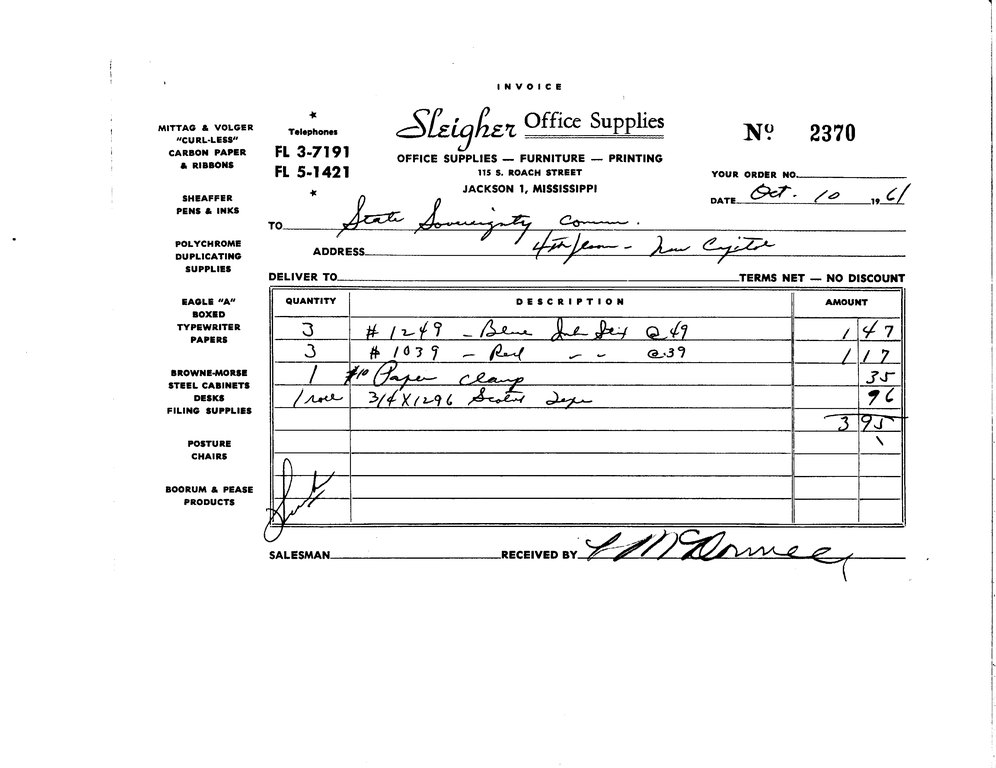 INVOICE
MITTAG & VOLGER
"CURL-LESS"
CARBON PAPER
& RIBBONS
SHEAFFER
PENS & INKS
POLYCHROME
DUPLICATING
SUPPLIES
EAGLE "A"
BOXED
TYPEWRITER
PAPERS
BROWNE-MORSE
STEEL CABINETS
DESKS
FILING SUPPLIES
POSTURE
CHAIRS
BOORUM & PEASE
PRODUCTS
Telephones
FL 3-7191
FL 5-1421
Sleigher Office Supplies
OFFICE SUPPLIES — FURNITURE — PRINTING
115 S. ROACH STREET
JACKSON 1, MISSISSIPPI
Nº 2370
YOUR ORDER NO.
DATE Oct. 10 1961
TO State Sovereignty Comm.
ADDRESS 4th floor - New Capitol
DELIVER TO TERMS NET — NO DISCOUNT
QUANTITY DESCRIPTION AMOUNT
3 # 1249 - Blue Ink @ 49 1 47
3 # 1039 - Red - - @ 39 1 17
1 #10 Paper clamp 35
1 roll 3/4 X 1296 Scotch Tape 96
3 95
SALESMAN RECEIVED BY McDonnell